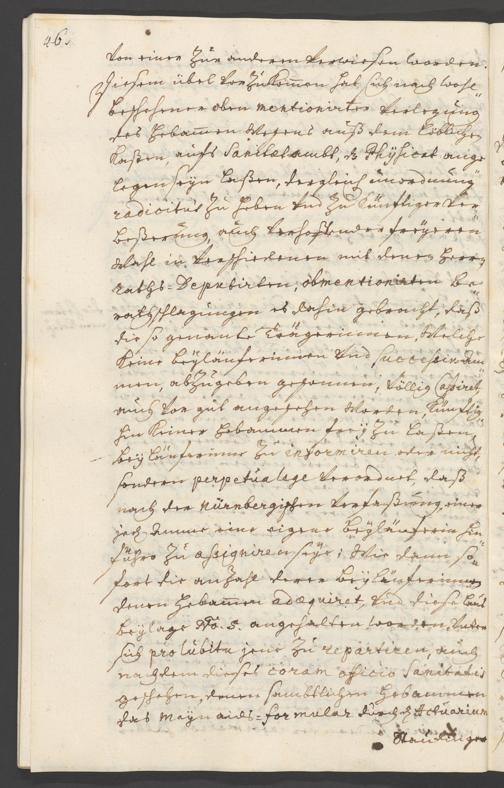 46.
von einer zur anderen verwiesen worden.
Diesem übel vorzukommen hat sich nach wohl-
beschehener oben mentionirter verlegung
des Hebammen Wesens auß dem Löblichen
Kasten, aufs Sanitätambt, d. Physicat ange-
legen seyn laßen, dergleich unordnung
radicitus zu heben und zu künfftiger ver-
beßerung, auch verhoffender
Wahl in verschiedenen mit denen Herrn
Raths-Deputirten, obmentionirten be-
rathschlagungen es dahin gebracht, daß
die so genante Trägerinnen, Welche
keine beyläuferinnen und successive
abzugeben gesonnen, völlig cassiret,
auch vor gut angesehen worden, künfftig-
hin keiner Hebammen frey zu laßen,
beyläuferinne zu informiren oder nicht,
sondern perpetua lege verordnet, daß
nach der Nürnbergischen Verfaßung, einer
jeden Amme eine eigene beyläuferin hin-
führo zu assigniren seye; Wie dann so-
fort die anzahl derer beyläuferinnen
denen Hebammen adæquiret, und diese laut
beylage No. 5. angehalten worden, unter
sich pro lubitu jene zu repartiren, auch
nachdem dieses coram officio Sanitatis
geschehen, denen sämbtlichen Hebammen
das Mayn aids-formular durch d. Actuarium